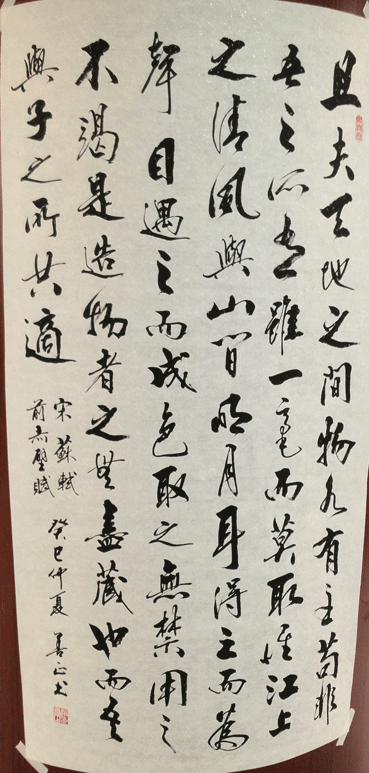 且夫天地之間物各有主苟非
吾之所有雖一毫而莫取惟江上
之清風與山間明月耳得之而為
聲目遇之而成色取之無禁用之
不竭是造物者之無盡藏也而吾
與子之所共適
宋蘇軾
前赤壁賦
癸巳仲夏善正书